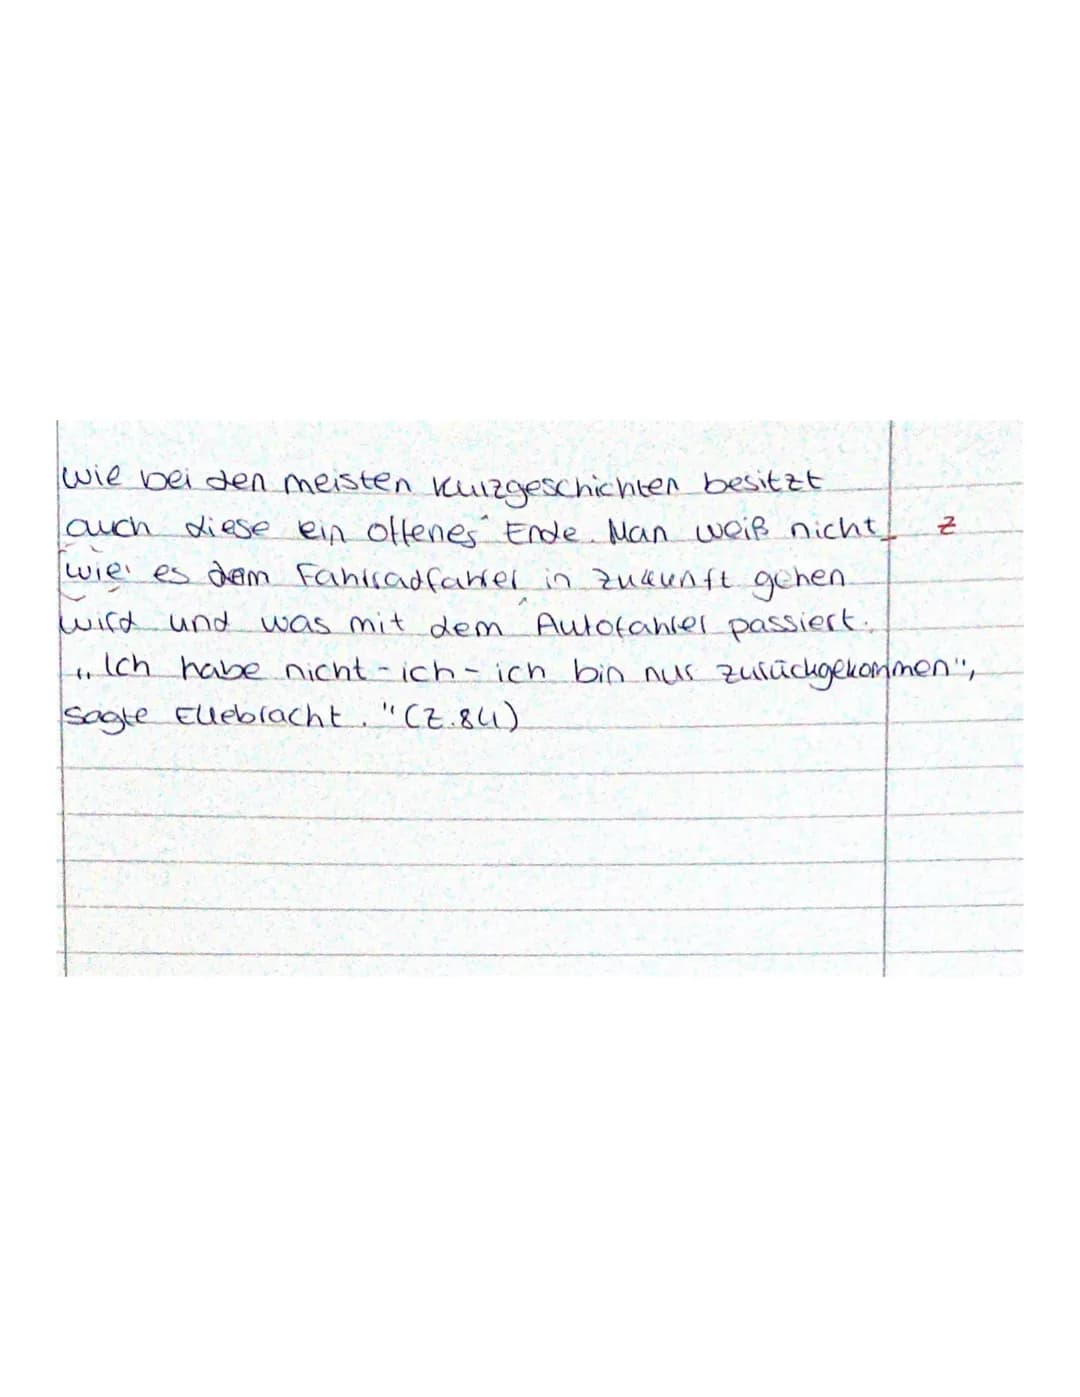 Wie bei den meisten Kurzgeschichten besitzt
auch diese ein offenes Ende. Man weiß nicht, Z
wie es dem Fahrradfahrer in Zukunft gehen
wird und was mit dem Autofahrer passiert.
„Ich habe nicht - ich - ich bin nur zurückgekommen",
sagte Ellebracht." (Z.84)